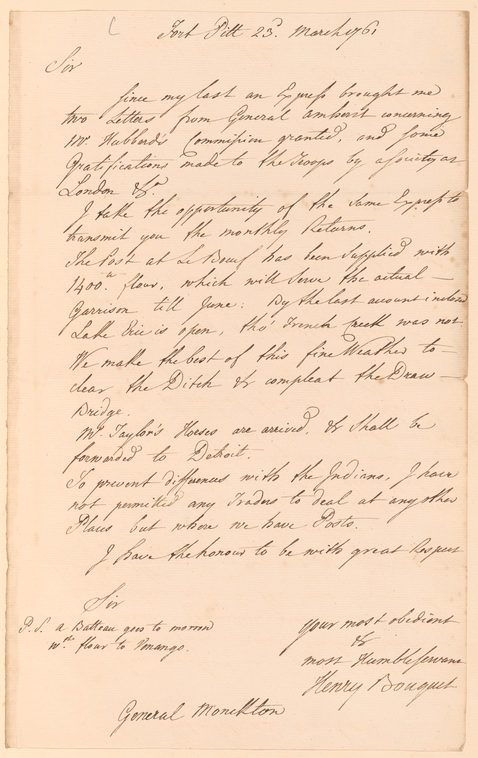 Fort Pitt 23d. March 1761
Sir
Since my last an Express brought me
two Letters from General Amherst concerning
Mr. Hubbard's Commission granted, and some
Gratifications made to the Troops by a Society at
London &ca.
I take the opportunity of the same Express to
transmit you the monthly Returns.
The Post at Le Beuf has been Supplied with
1400 flour, which will serve the actual —
Garrison till June: By the last account inclosed
Lake Erie is open, tho' French Creek was not
We make the best of this fine Weather to —
clear the Ditch & compleat the Draw —
Bridge.
Mr. Taylor's Horses are arrived, & shall be
forwarded to Detroit.
To prevent differences with the Indians, I have
not permitted any Traders to deal at any other
Places but where we have Posts.
I have the honour to be with great Respect
Sir
P.S. a Batteau goes to morrow
wth. flour to Venango.
Your most obedient
&
most Humble Servant
Henry Bouquet
General Monckton